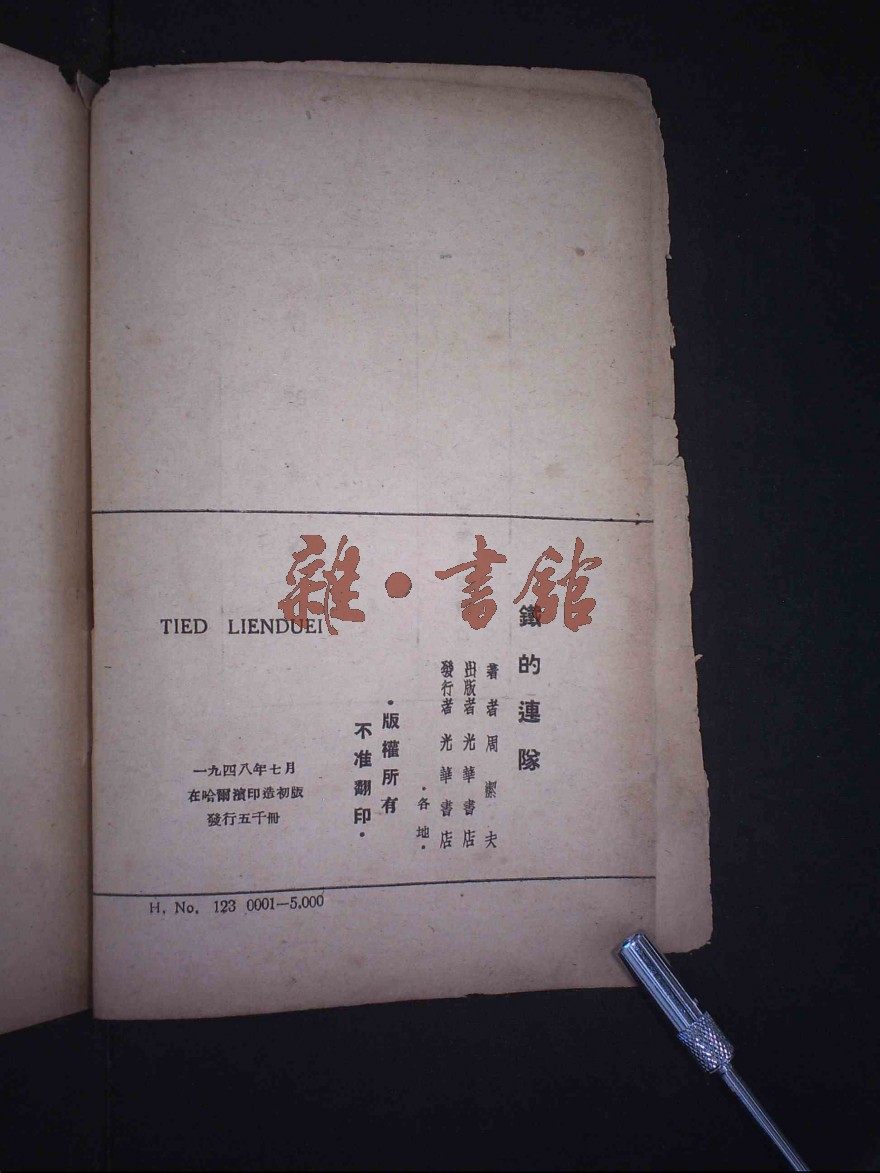 雜·書館
鐵的連隊
著者 周潔夫
出版者 光華書店
發行者 光華書店
·各地·
·版權所有
不准翻印·
TIED LIENDUEI
一九四八年七月
在哈爾濱印造初版
發行五千冊
H. No. 123 0001—5,000